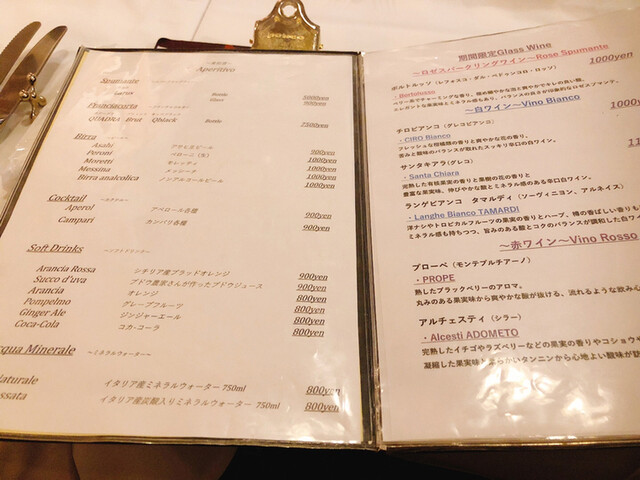 ～食前酒～
Aperitivo
Spumante
Bottle 5000yen
Glass 900yen
Franciacorta
QUADRA Brut Qblack Bottle 7500yen
Birra
Asahi アサヒビール 900yen
Peroni ペローニ（生） 1000yen
Moretti モレッティ 1000yen
Messina メッシーナ 1000yen
Birra analcolica ノンアルコールビール 1000yen
Cocktail ～カクテル～
Aperol アペロール各種 900yen
Campari カンパリ各種 900yen
Soft Drinks ～ソフトドリンク～
Arancia Rossa シチリア産ブラッドオレンジ 900yen
Succo d'uva ブドウ農家さんが作ったブドウジュース 900yen
Arancia オレンジ 800yen
Pompelmo グレープフルーツ 800yen
Ginger Ale ジンジャーエール 800yen
Coca-Cola コカ・コーラ 800yen
cqua Minerale ～ミネラルウォーター～
Naturale イタリア産ミネラルウォーター 750ml 800yen
assata イタリア産炭酸入りミネラルウォーター 750ml 800yen
期間限定Glass Wine
～ロゼスパークリングワイン～Rose Spumante
ボルトルッツ（レフォスコ・ダル・ペドゥンコロ・ロッソ） 1000yen
・Bortolusso
ベリー系でチャーミングな香り。
エレガントな果実味とミネラル感もあり、バランスの良さが印象的なロゼスプマンテ。
～白ワイン～Vino Bianco
チロビアンコ（グレコビアンコ） 1000
・CIRO Bianco
フレッシュな柑橘類の香りと爽やかな花の香り。
苦みと酸味のバランスが取れたスッキリ辛口の白ワイン。
サンタキアラ(グレコ) 11
・Santa Chiara
完熟した有核果実の香りと果樹の花の香りと
豊富な果実味、伸びやかな酸とミネラル感のある辛口白ワイン。
ランゲビアンコ タマルディ（ソーヴィニヨン、アルネイス）
・Langhe Bianco TAMARDI
洋ナシやトロピカルフルーツの果実の香りとハーブ、
ミネラル感も持ちつつ、旨みのある酸とコクのバランスが調
～赤ワイン～Vino Rosso
プローペ（モンテプルチアーノ）
・PROPE
熟したブラックベリーのアロマ。
丸みのある果実味から爽やかな酸が抜ける、流れるような飲み心
アルチェスティ（シラー）
・Alcesti ADOMETO
完熟したイチゴやラズベリーなどの果実の香りやコショウや
凝縮した果実味と
タンニンから心地よい酸味が